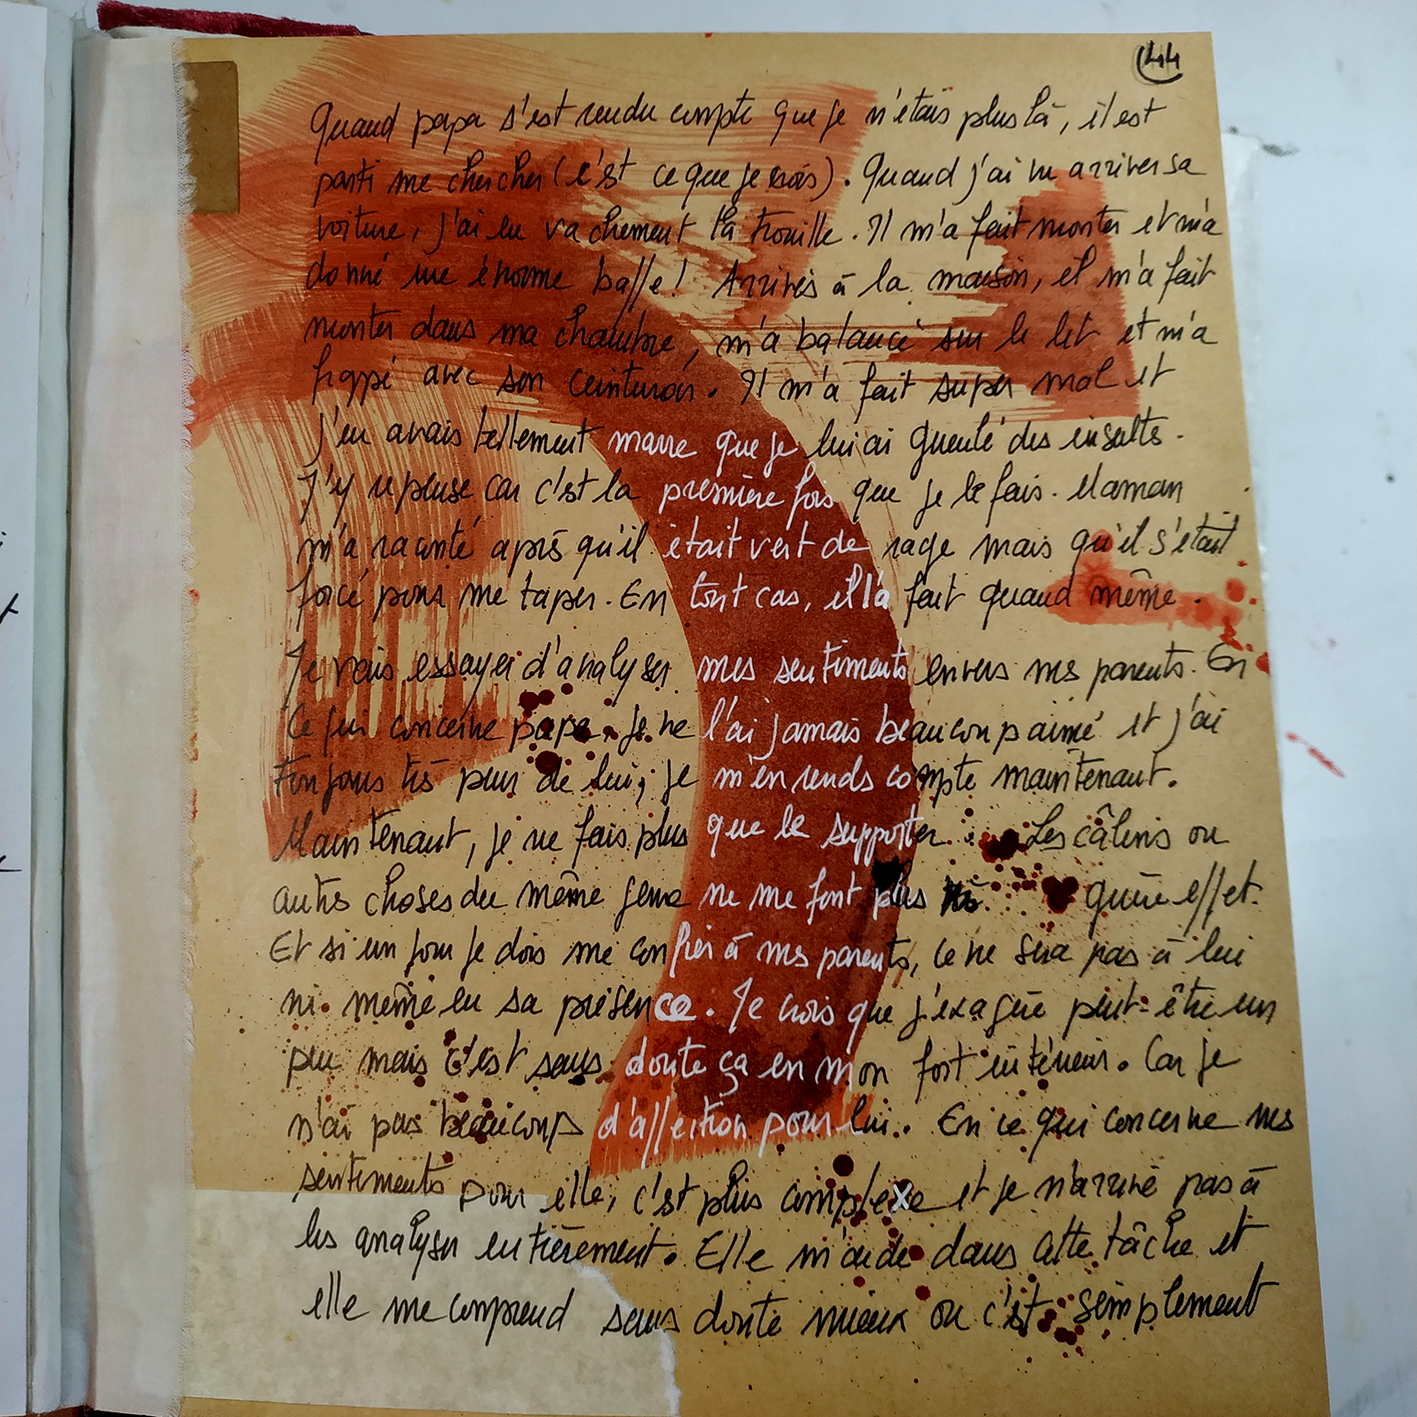 44
Quand papa s'est rendu compte que je n'étais plus là, il est
parti me chercher (c'est ce que je crois). Quand j'ai vu arriver sa
voiture, j'ai eu vachement la trouille. Il m'a fait monter et m'a
donné une énorme baffe! Arrivés à la maison, il m'a fait
monter dans ma chambre, m'a balancé sur le lit et m'a
frappé avec son ceinturon. Il m'a fait super mal et
j'en avais tellement marre que je lui ai gueulé des insultes.
J'y repense car c'est la première fois que je le fais. Maman
m'a raconté après qu'il était vert de rage mais qu'il s'était
forcé pour me taper. En tout cas, il l'a fait quand même.
Je vais essayer d'analyser mes sentiments envers mes parents. En
ce qui concerne papa, je ne l'ai jamais beaucoup aimé et j'ai
toujours très peur de lui; je m'en rends compte maintenant.
Maintenant, je ne fais plus que le supporter. Les câlins ou
autres choses du même genre ne me font plus guère effet.
Et si un jour je dois me confier à mes parents, ce ne sera pas à lui
ni même en sa présence. Je crois que j'exagère peut-être un
peu mais c'est sans doute ça en mon fort intérieur. Car je
n'ai pas beaucoup d'affection pour lui. En ce qui concerne mes
sentiments pour elle, c'est plus complexe et je n'arrive pas à
les analyser entièrement. Elle m'aide dans cette tâche et
elle me comprend sans doute mieux ou c'est simplement